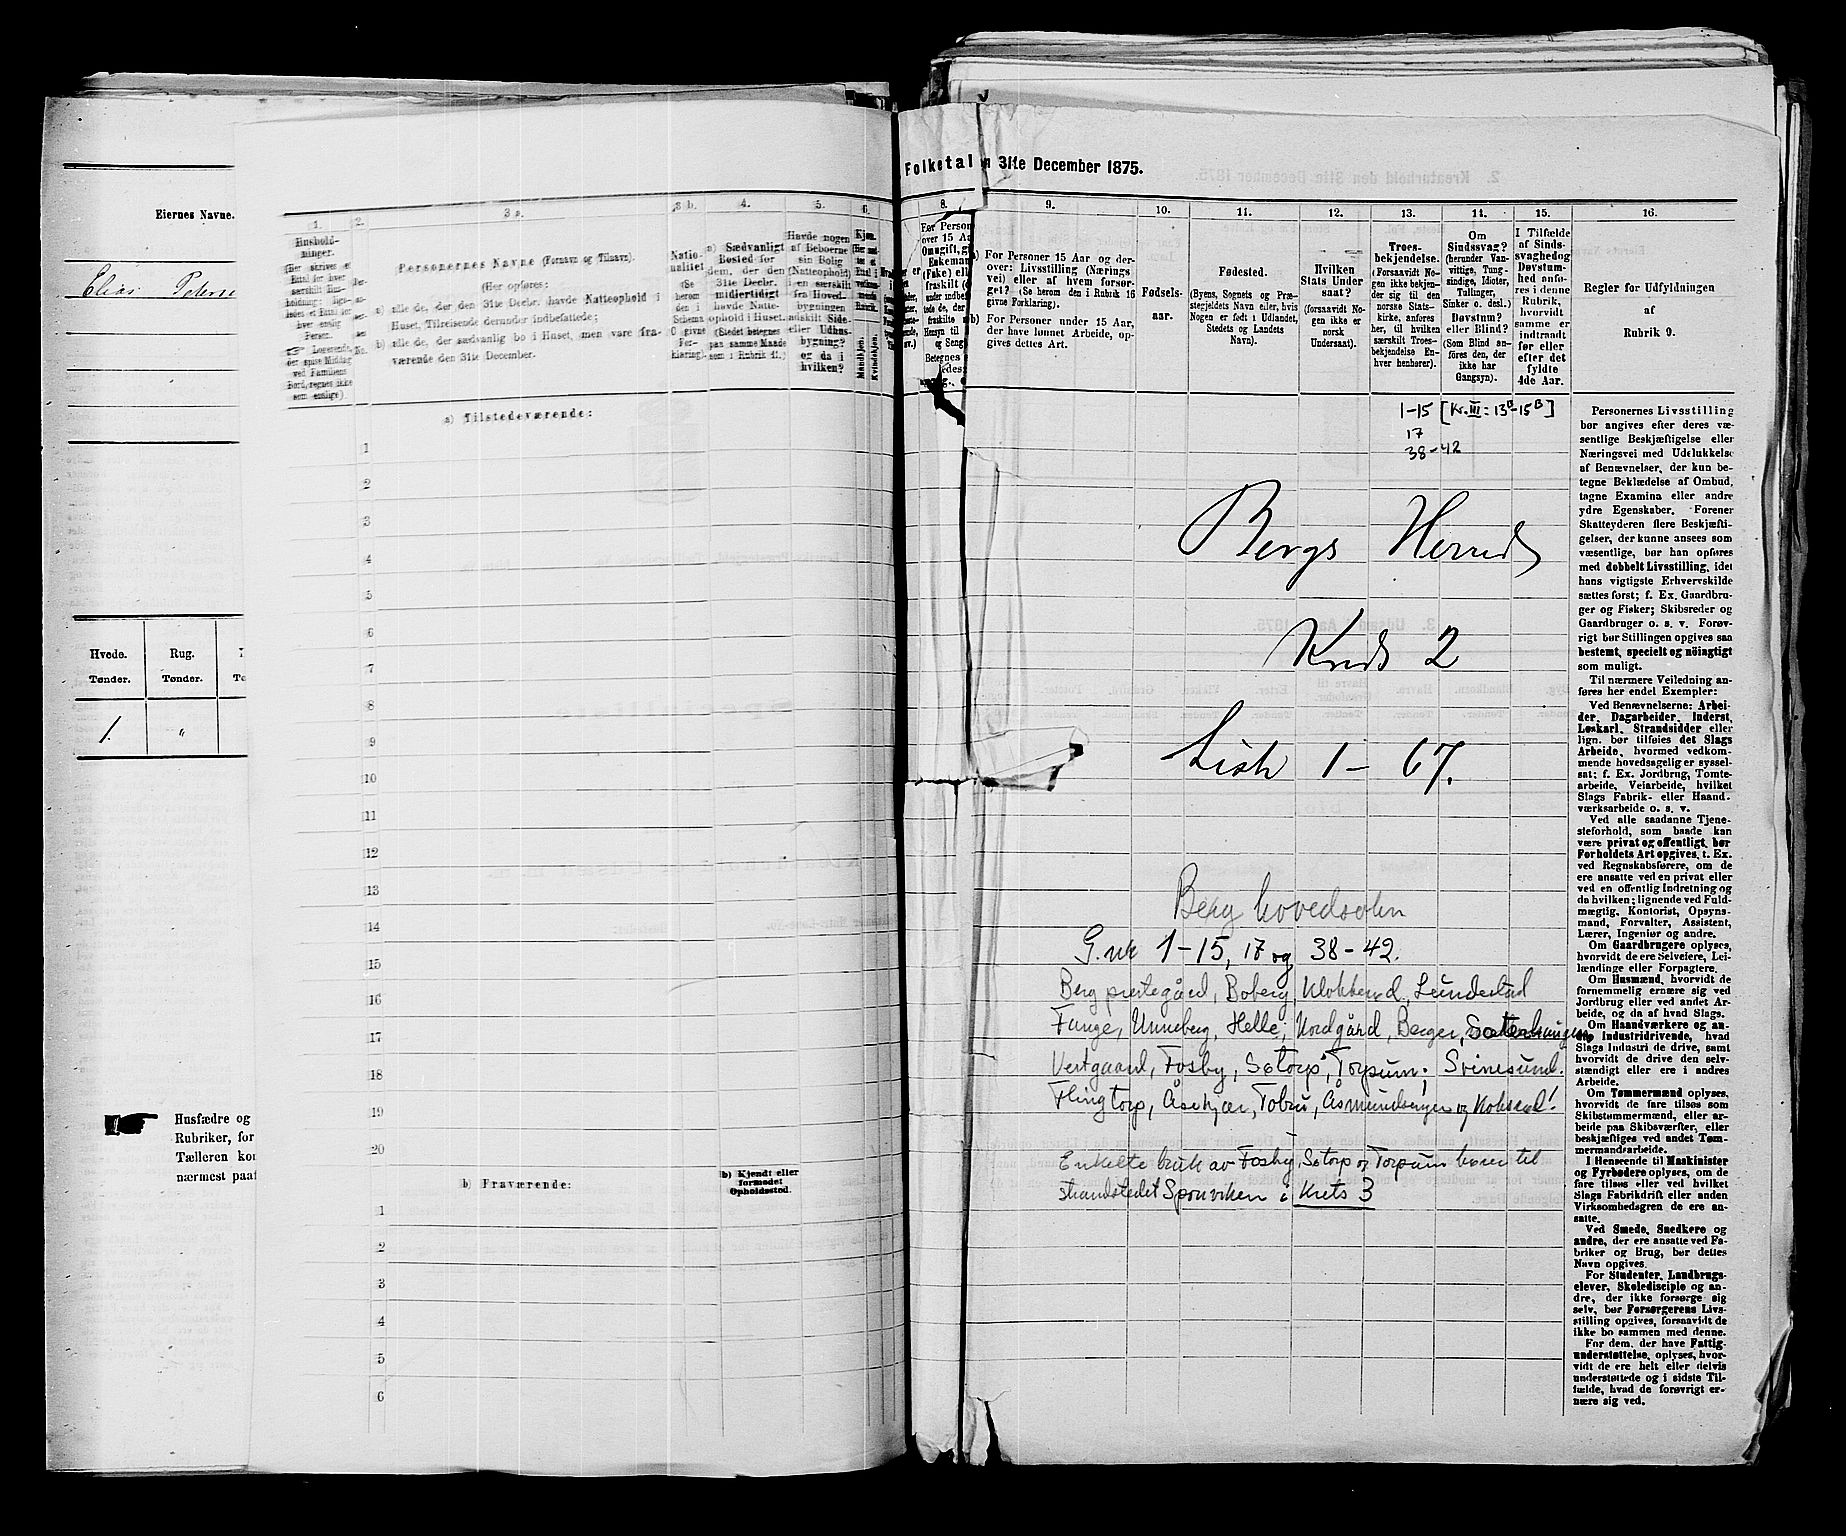 Eiernes Navne.
Elias Peterse
Hvede. Rug.
Tønder. Tønder.
1. "
Husfædre og
Rubriker, for
Tælleren kon
nærmest paaf
1. 2. 3 a. 3 b. 4. 5. 6.
Hushold-
ninger.
Personernes Navne (Fornavn og Tilnavn).
(Her opføres:
a) alle de, der den 31te Decbr. havde Natteophold i
Huset, Tilreisende derunder indbefattede;
b) alle de, der sædvanlig bo i Huset, men vare fra-
værende den 31te December.
Natio-
nalitet
(Se
herom
den i
Schema
O givne
For-
klaring).
a) Sædvanligt
Bosted for
dem, der den
31te Decbr.
midlertidigt
havde Natte-
ophold i Huset.
(Stedet betegnes
paa samme Maade
som i Rubrik 11.)
Havde nogen
af Beboerne
sin Bolig
(Natteophold)
i en særskilt
fra Hoved-
bygningen
adskilt Side-
eller Udhus-
bygning?
og da i
hvilken?
Kjøn.
Mandkjøn.
Kvindekjøn.
a) Tilstedeværende:
1
2
3
4
5
6
7
8
9
10
11
12
13
14
15
16
17
18
19
20
b) Fraværende:
b) Kjendt eller
formodet
Opholdssted.
1
2
3
4
5
6
Folketal
n 31te December 1875.
8. 9. 10. 11. 12. 13. 14. 15. 16.
a) For Personer 15 Aar og der-
over: Livsstilling (Nærings
vei) eller af hvem forsør-
get? (Se herom den i Rubrik 16
givne Forklaring).
b) For Personer under 15 Aar,
der have lønnet Arbeide, op-
gives dettes Art.
Fødsels-
aar.
Fødested.
(Byens, Sognets og Præ-
stegjeldets Navn eller, hvis
Nogen er født i Udlandet,
Stedets og Landets
Navn).
Hvilken
Stats Under
saat?
(forsaavidt No-
gen ikke er
norsk
Undersaat).
Troes-
bekjendelse.
(Forsaavidt No-
gen ikke bekjen-
der sig til den
norske Stats-
kirke, anføres
her, til hvilken
særskilt Troes-
bekjendelse En-
hver henhører).
Om
Sindssvag?
(herunder Van-
vittige, Tung-
sindige, Idioter,
Tullinger,
Sinker o. desl.)
Døvstum?
eller Blind?
(Som Blind an-
føres den, der
ikke har
Gangsyn).
I Tilfælde
af Sinds-
svaghed og
Døvstum-
hed anfø-
res i denne
Rubrik,
hvorvidt
samme er
indtraadt
før eller
efter det
fyldte
4de Aar.
Regler for Udfyldningen
af
Rubrik 9.
1-15 [Kr. III: 13B-15B]
17
38-42
Bergs Herred
Kreds 2
Liste 1 - 67.
Berg hovedsokn
G.nr 1-15, 17 og 38-42.
Berg prestegård, Boberg, Klokkerud, Lunderstad
Fange, Unneberg, Helle, Nordgård, Berger,
Vestgaard, Fosby, Sotorp, Torpum; Svinesund.
Flingtorp, Åsekjær, Tobru, Åsmundsengen og
Enkelte bruk av Fosby, Sotorp og Torpum hører til
strandstedet Sponviken i Krets 3
Personernes Livsstilling
bør angives efter deres væ-
sentlige Beskjæftigelse eller
Næringsvei med Udelukkelse
af Benævnelser, der kun be-
tegne Beklædelse af Ombud,
tagne Examina eller andre
ydre Egenskaber. Forener
Skatteyderen flere Beskjæfti-
gelser, der kunne ansees som
væsentlige, bør han opføres
med dobbelt Livsstilling, idet
hans vigtigste Erhvervskilde
sættes først; f. Ex. Gaardbru-
ger og Fisker; Skibsreder og
Gaardbruger o. s. v. Forøv-
rigt bør Stillingen opgives saa
bestemt, specielt og nöiagtigt
som muligt.
Til nærmere Veiledning an-
føres her endel Exempler:
Ved Benævnelserne: Arbei-
der, Dagarbeider, Inderst,
Løskarl, Strandsidder eller
lign. bør tilføies det Slags
Arbeide, hvormed vedkom-
mende hovedsagelig er syssel-
sat; f. Ex. Jordbrug, Tomte-
arbeide, Veiarbeide, hvilket
Slags Fabrik- eller Haand-
værksarbeide o. s. v.
Ved alle saadanne Tjene-
steforhold, som baade kan
være privat og offentligt, bør
Forholdets Art opgives, t. Ex.
ved Regnskabsførere, om de
ere ansatte ved en privat eller
ved en offentlig Indretning og
da hvilken; lignende ved Fuld-
mægtig, Kontorist, Opsyns-
mand, Forvalter, Assistent,
Lærer, Ingeniør og andre.
Om Gaardbrugere oplyses,
hvorvidt de ere Selveiere, Lei-
lændinge eller Forpagtere.
Om Husmænd, hvorvidt de
fornemmelig ernære sig ved
Jordbrug eller ved andet Ar-
beide, og da af hvad Slags.
Om Haandværkere og an-
dre Industridrivende, hvad
Slags Industri de drive, samt
hvorvidt de drive den selv-
stændigt eller ere i andres
Arbeide.
Om Tømmermænd oplyses,
hvorvidt de fare tilsøs som
Skibstømmermænd, eller ar-
beide paa Skibsværfter, eller
beskjæftiges ved andet Tøm-
mermandsarbeide.
I Henseende til Maskinister
og Fyrbødere oplyses, om de
fare tilsøs eller ved hvilket
Slags Fabrikdrift eller anden
Virksomhedsgren de ere an-
satte.
Ved Smede, Snedkere og
andre, der ere ansatte ved Fa-
briker og Brug, bør dettes
Navn opgives.
For Studenter, Landbrugs-
elever, Skoledisciple og an-
dre, der ikke forsørge sig
selv, bør Forsørgerens Livs-
stilling opgives, forsaavidt de
ikke bo sammen med denne.
For dem, der have Fattig-
understøttelse, oplyses, hvor-
vidt de ere helt eller delvis
understøttede og i sidste Til-
fælde, hvad de forøvrigt er-
nære sig ved.